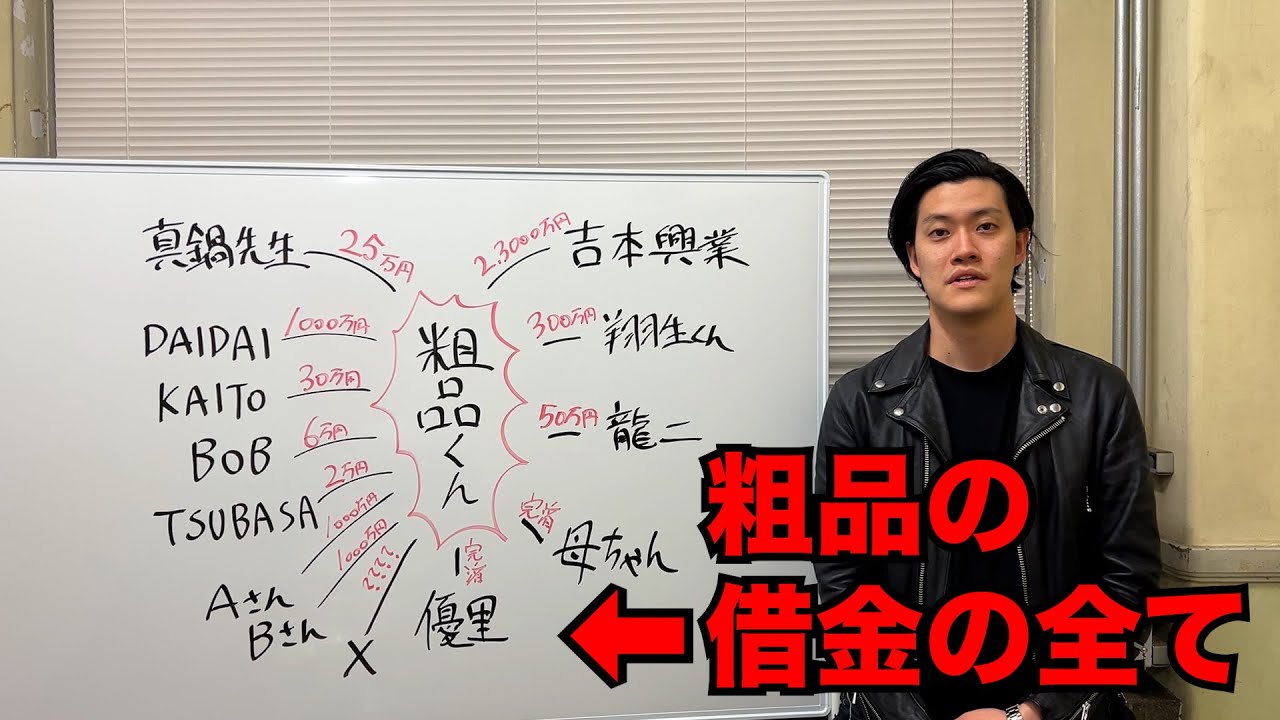 真鍋先生 25万円
2,3000万円 吉本興業
DAIDAI 1000万円
300万円 翔生くん
KAITO 30万円
50万円 龍二
BOB 6万円
TSUBASA 2万円
粗品くん
Aさん 1000万円
Bさん 1000万円
X ????
完済 優里
完済 母ちゃん
粗品の
←借金の全て